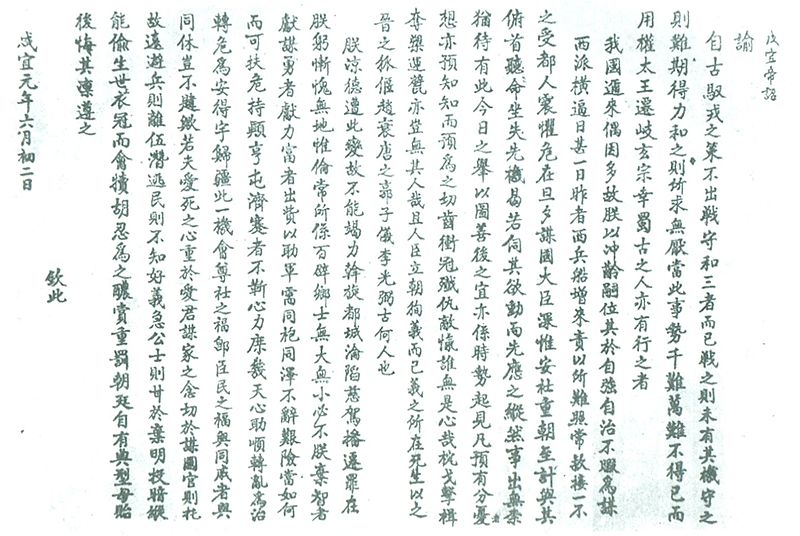 咸宜帝詔
諭
自古馭戎之策不出戰守和三者而已戰之則未有其機守之
則難期得力和之則所求無厭當此事勢千難萬難不得已而
用權太王遷岐玄宗幸蜀古之人亦有行之者
我國邇來偶因多故朕以冲齡嗣位其於自強自治不暇為謀
西派橫逼日甚一日昨者西兵船增來責以所難照常款接一不
之受都人震懼危在旦夕謀國大臣深惟安社重朝至計與其
俯首聽命坐失先機曷若伺其欲動而先應之縱然事出無奈
猶待有此今日之舉以圖善後之宜亦係時勢起見凡預有分憂
想亦預知知而預為之切齒衝冠殲仇敵愾誰無是心哉枕戈擊楫
奪槊運甓亦豈無其人哉且人臣立朝徇義而已義之所在死生以之
晉之狐偃趙衰唐之郭子儀李光弼古何人也
朕涼德遭此變故不能竭力斡旋都城淪陷慈駕播遷罪在
朕躬慚愧無地惟倫常所係百辟卿士無大無小必不朕棄智者
獻謀勇者獻力富者出貲以助軍需同袍同澤不辭艱險當如何
而可扶危持顛亨屯濟蹇者不靳心力庶幾天心助順轉亂為治
轉危為安得字歸疆此一機會尊社之福卽臣民之福與同戚者與
同休豈不韙歟若夫愛死之心重於愛君謀家之念切於謀國官則托
故遠避兵則離伍潛逃民則不知好義急公士則甘於棄明投暗縱
能偷生世衣冠而禽犢胡忍為之醲賞重罰朝廷自有典型毋貽
後悔其凜遵之
欽此
咸宜元年六月初二日